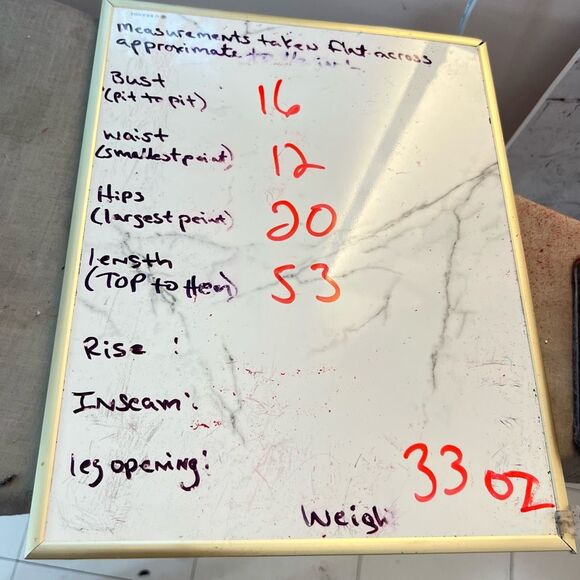 Measurements taken flat across
approximate
Bust
(pit to pit) 16
waist
(smallest point) 12
Hips
(largest point) 20
length
(TOP to Hem) 53
Rise :
Inseam:
leg opening:
33 oz
Weigh